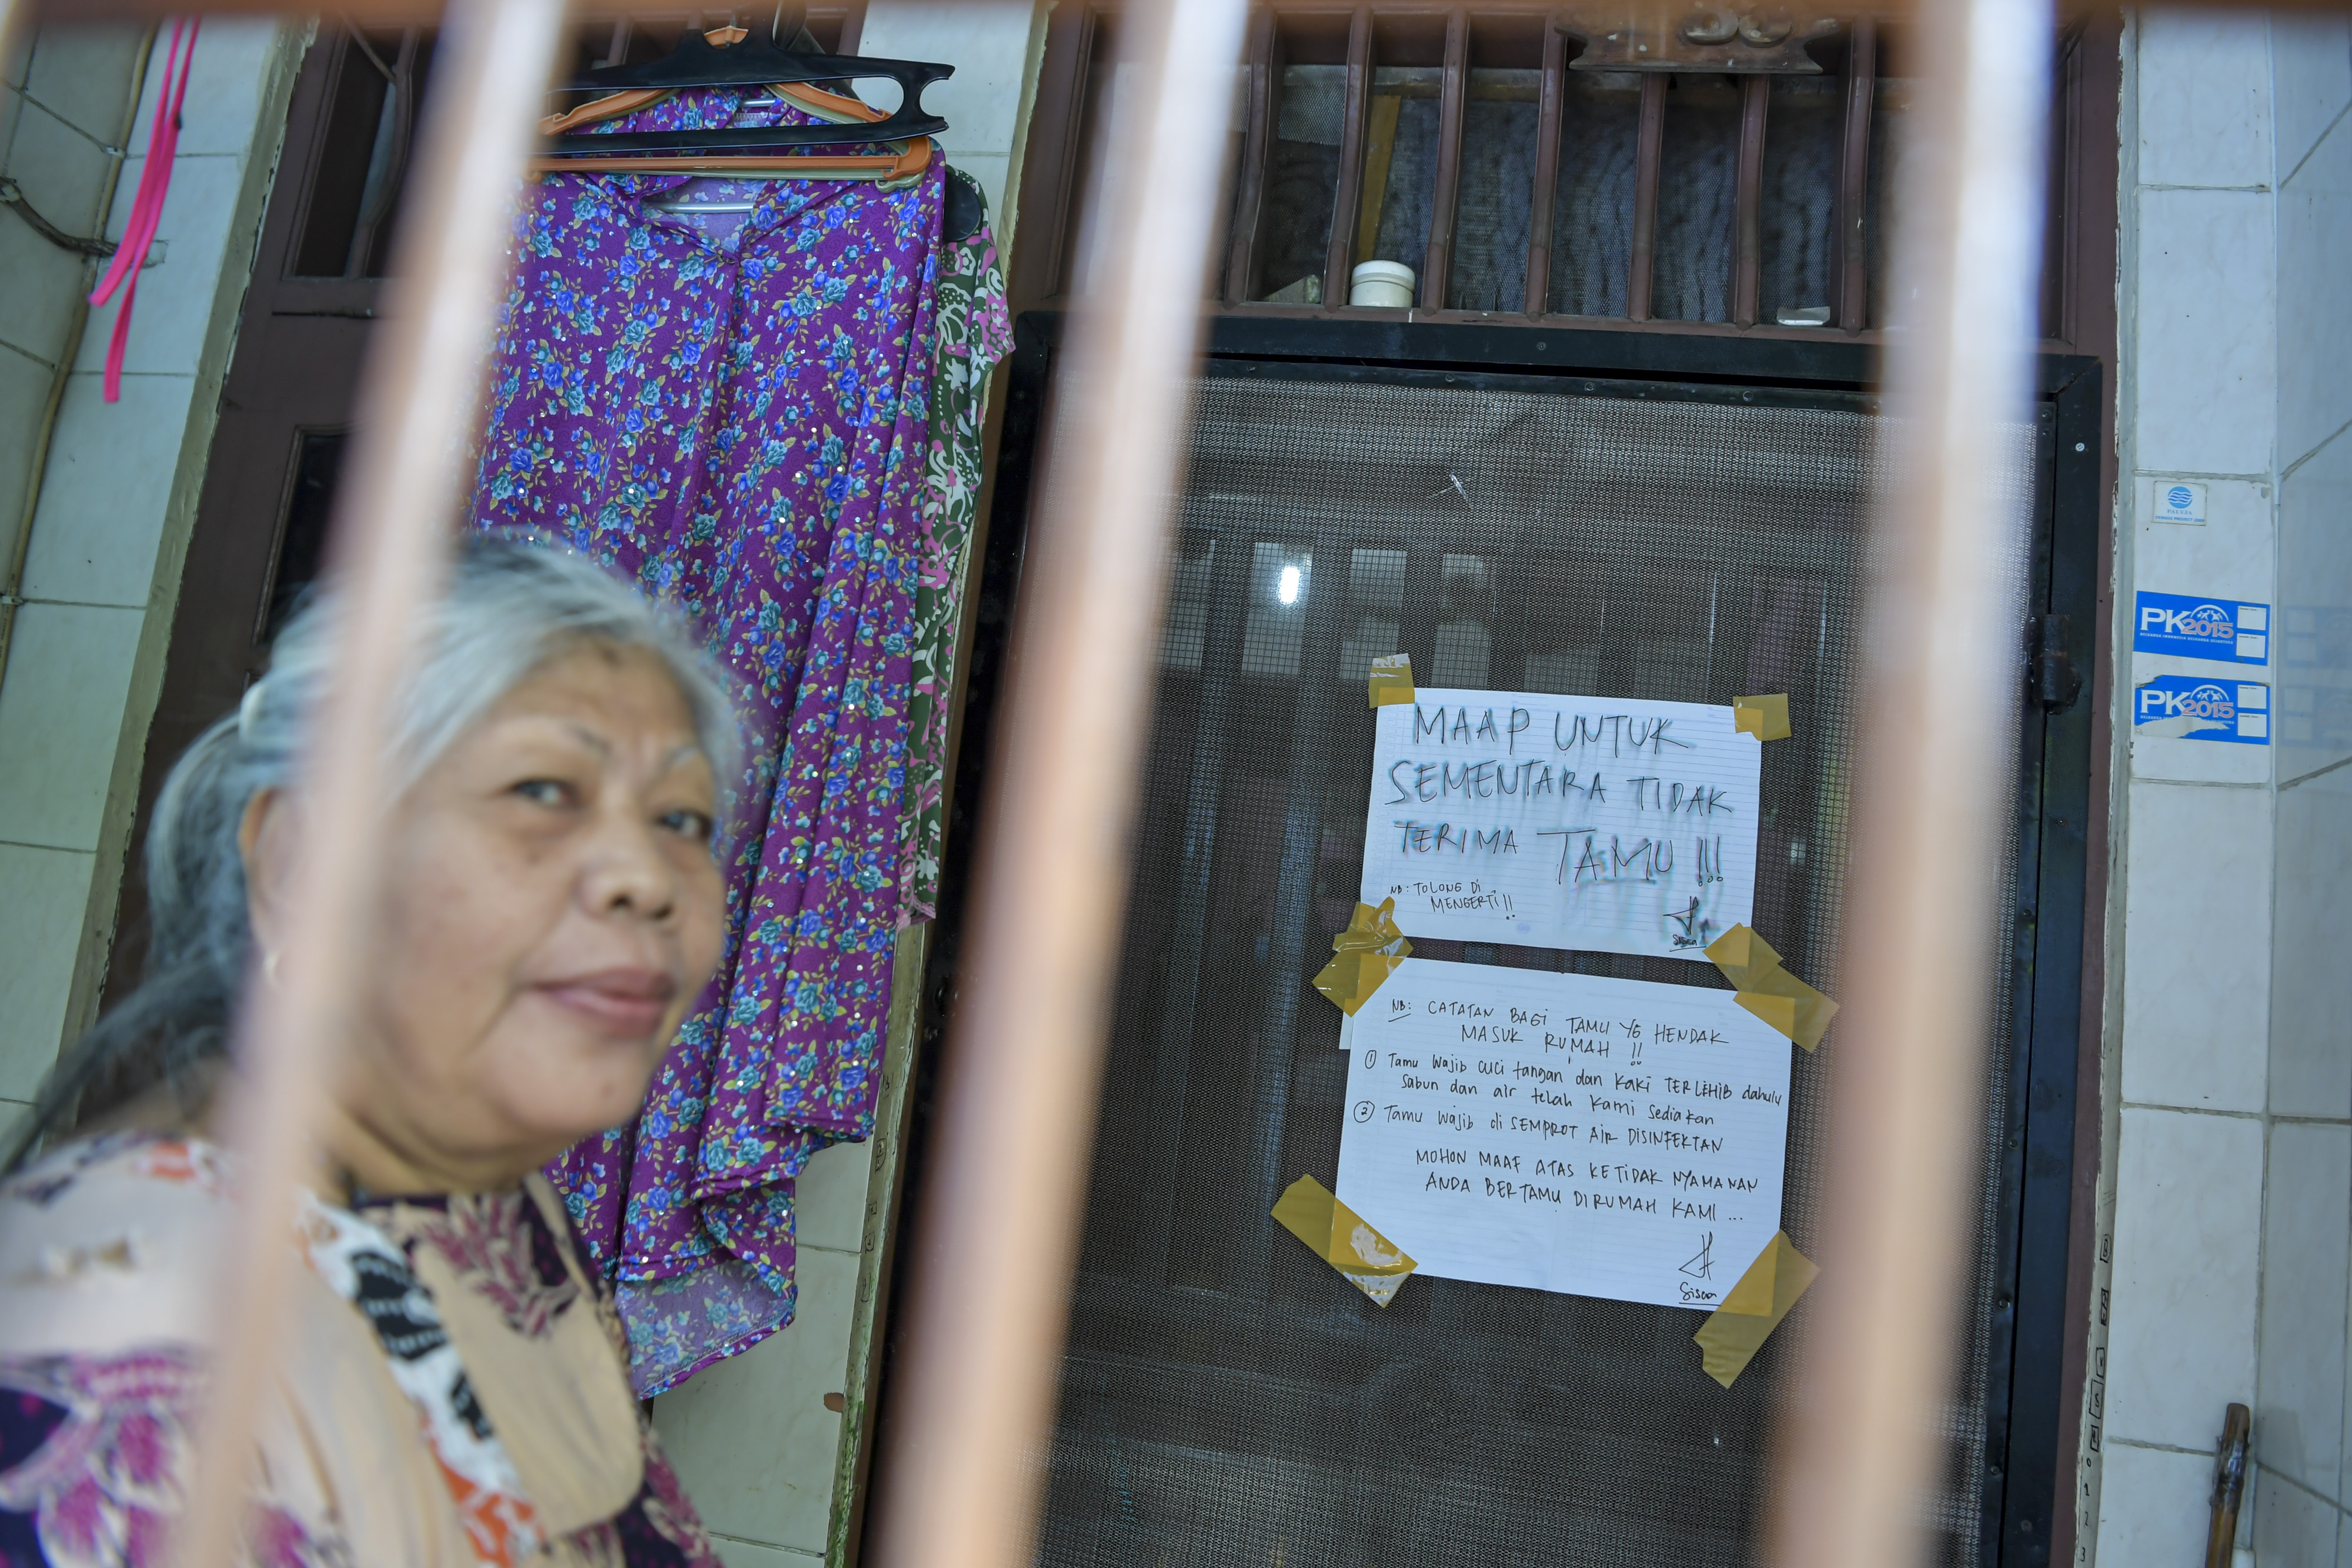 MAAP UNTUK
SEMENTARA TIDAK
TERIMA TAMU !!!
NB: TOLONG DI
MENGERTI!!
Sisca
NB: CATATAN BAGI TAMU YG HENDAK
MASUK RUMAH !!
① Tamu Wajib cuci tangan dan kaki TERLEHIB dahulu
Sabun dan air telah kami sediakan
② Tamu wajib di SEMPROT AIR DISINFEKTAN
MOHON MAAF ATAS KETIDAK NYAMANAN
ANDA BERTAMU DIRUMAH KAMI ...
Sisca
PK2015
PK2015